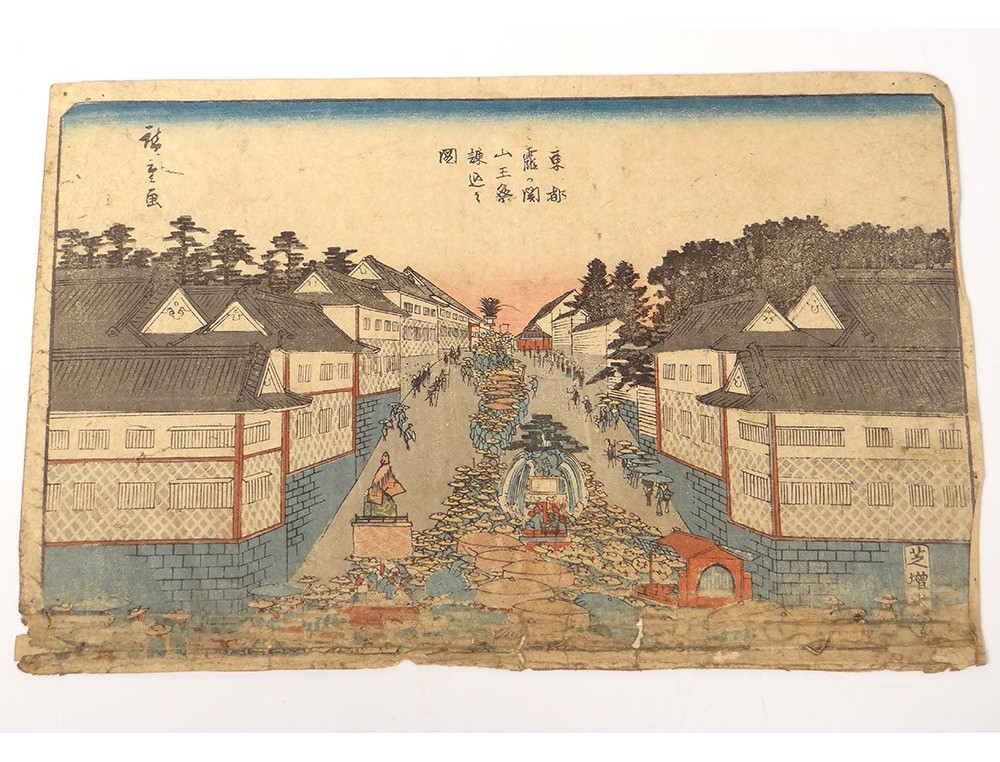 東都
霞の関
山王祭
練込之
図
廣重画
芝増